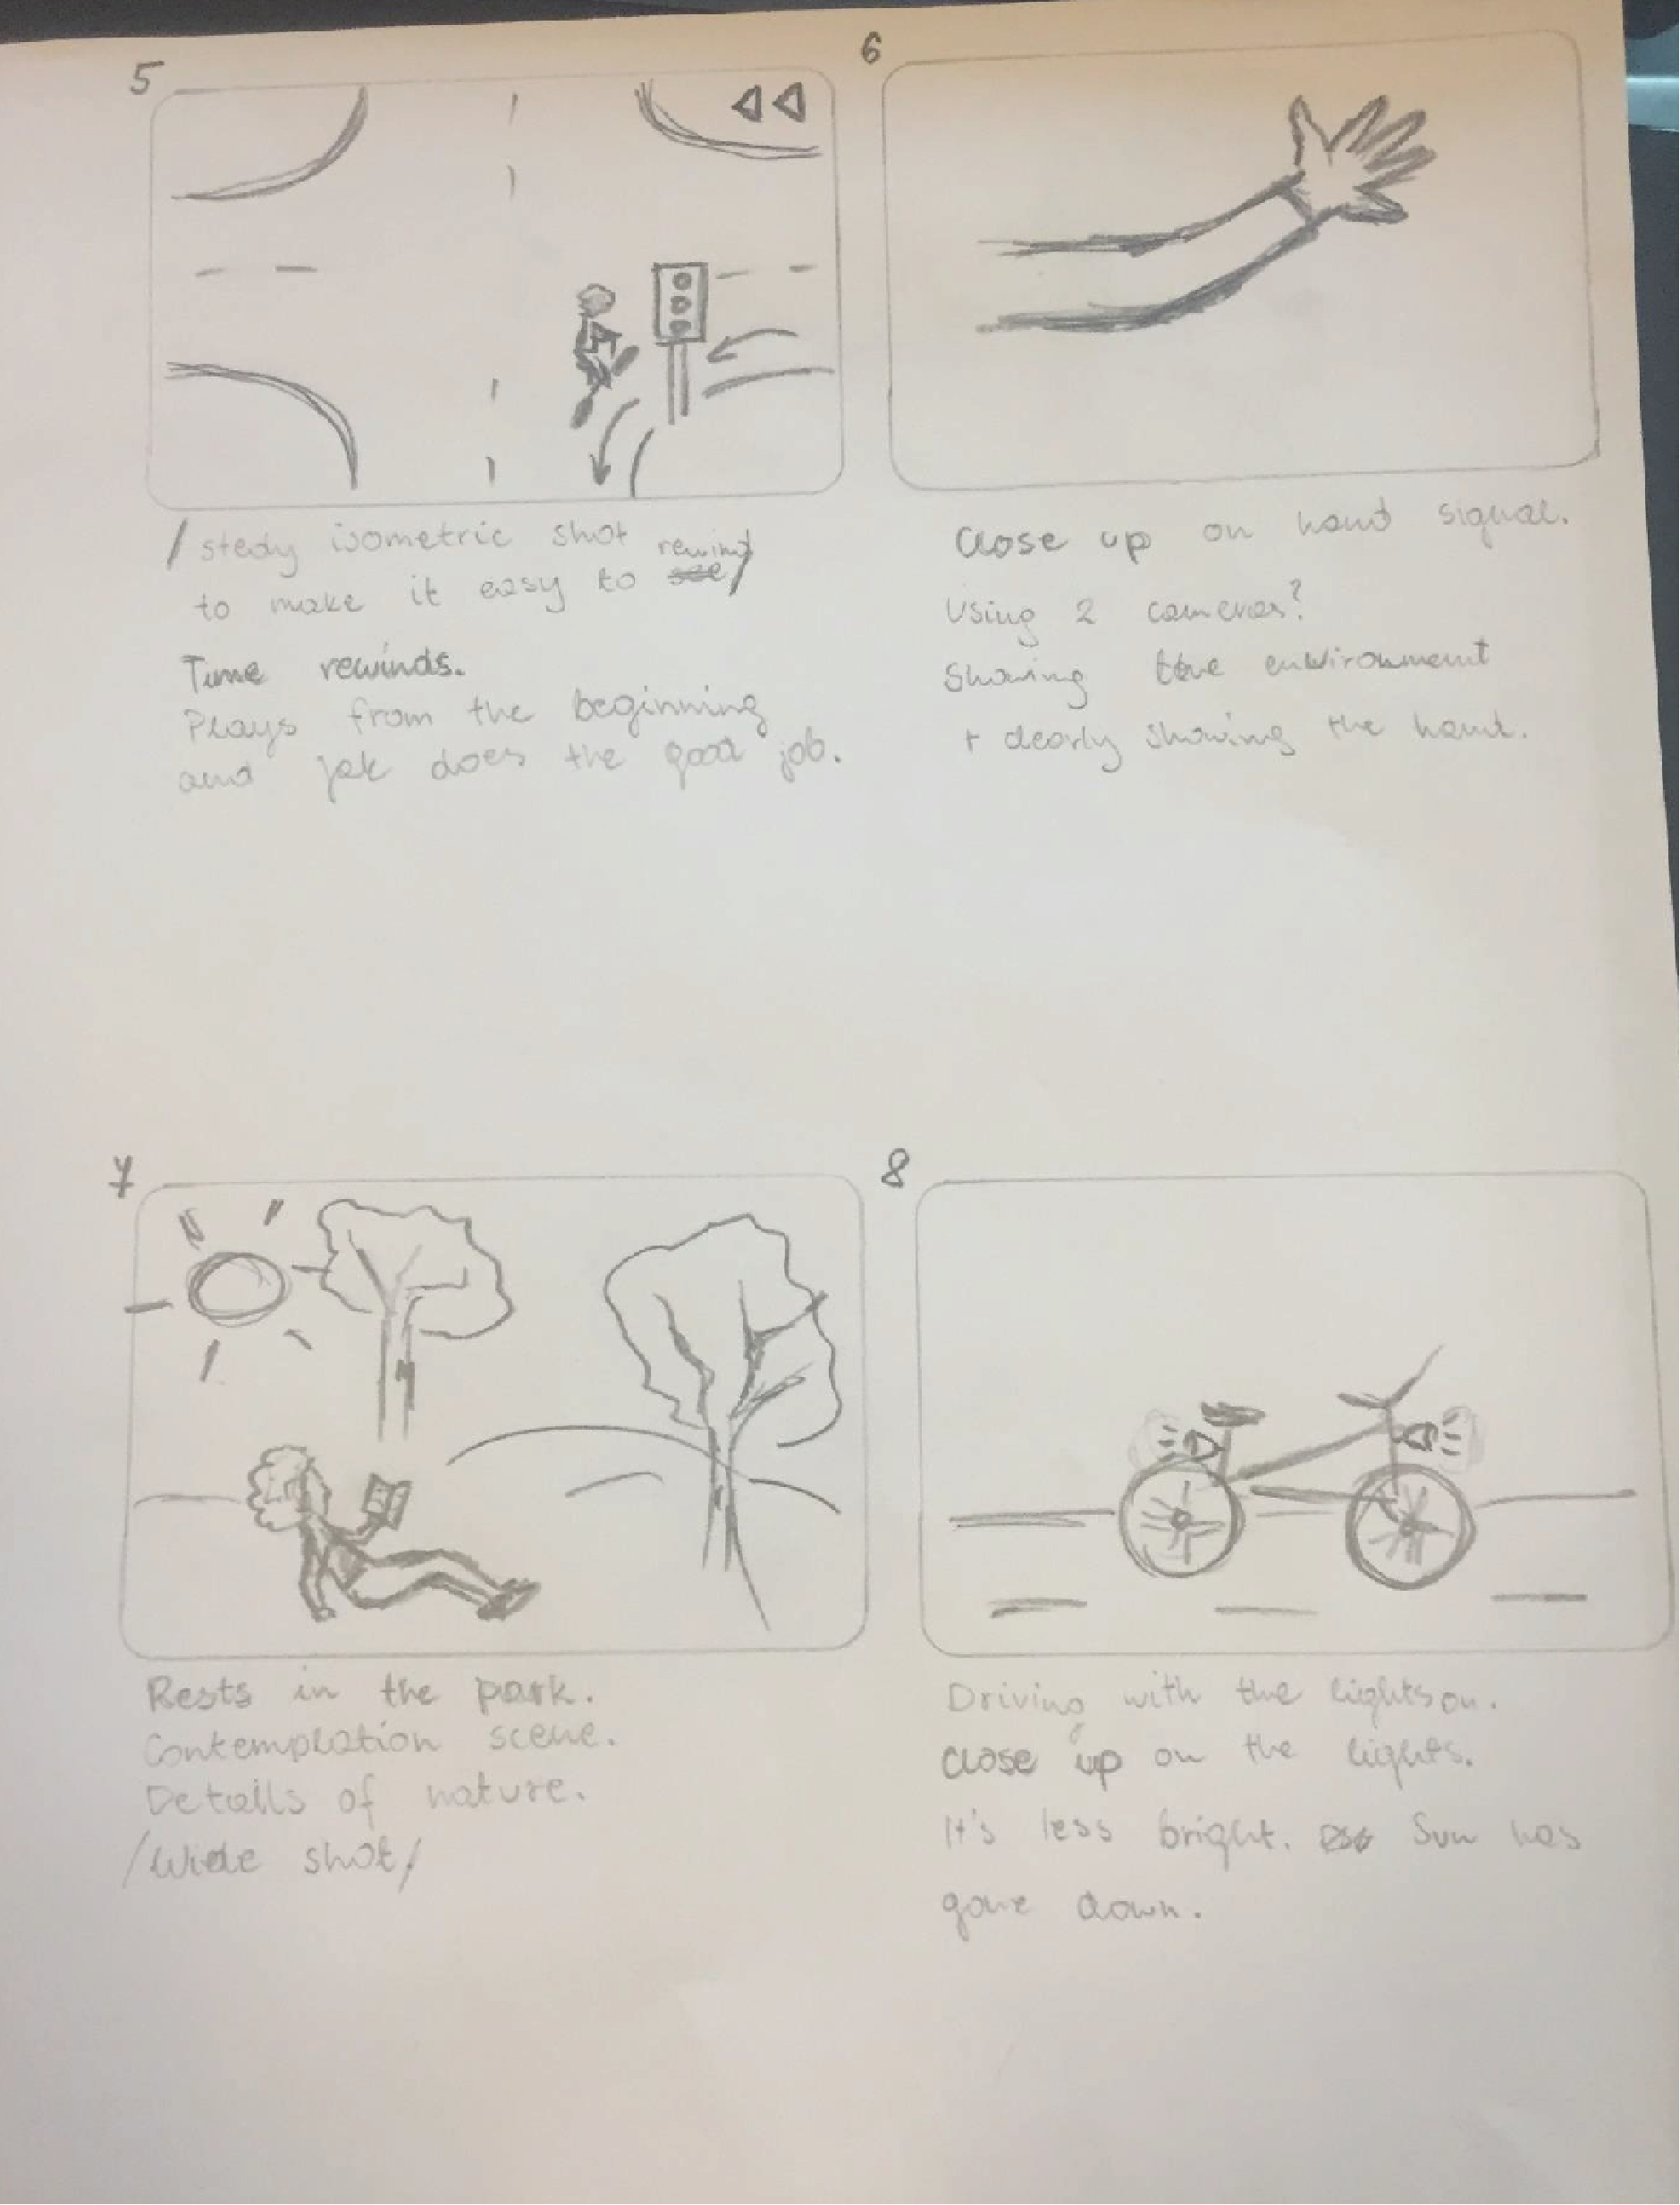 5
/stedy isometric shot
to make it easy to rewind/
Time rewinds.
Plays from the beginning
and jak does the good job.
6
Close up on hand signal.
Using 2 cameras?
Showing the enviroument
+ clearly showing the hand.
7
Rests in the park.
Contemplation scene.
Details of nature.
/Wide shot/
8
Driving with the lights on.
Close up on the lights.
It's less bright. Sun has
gone down.